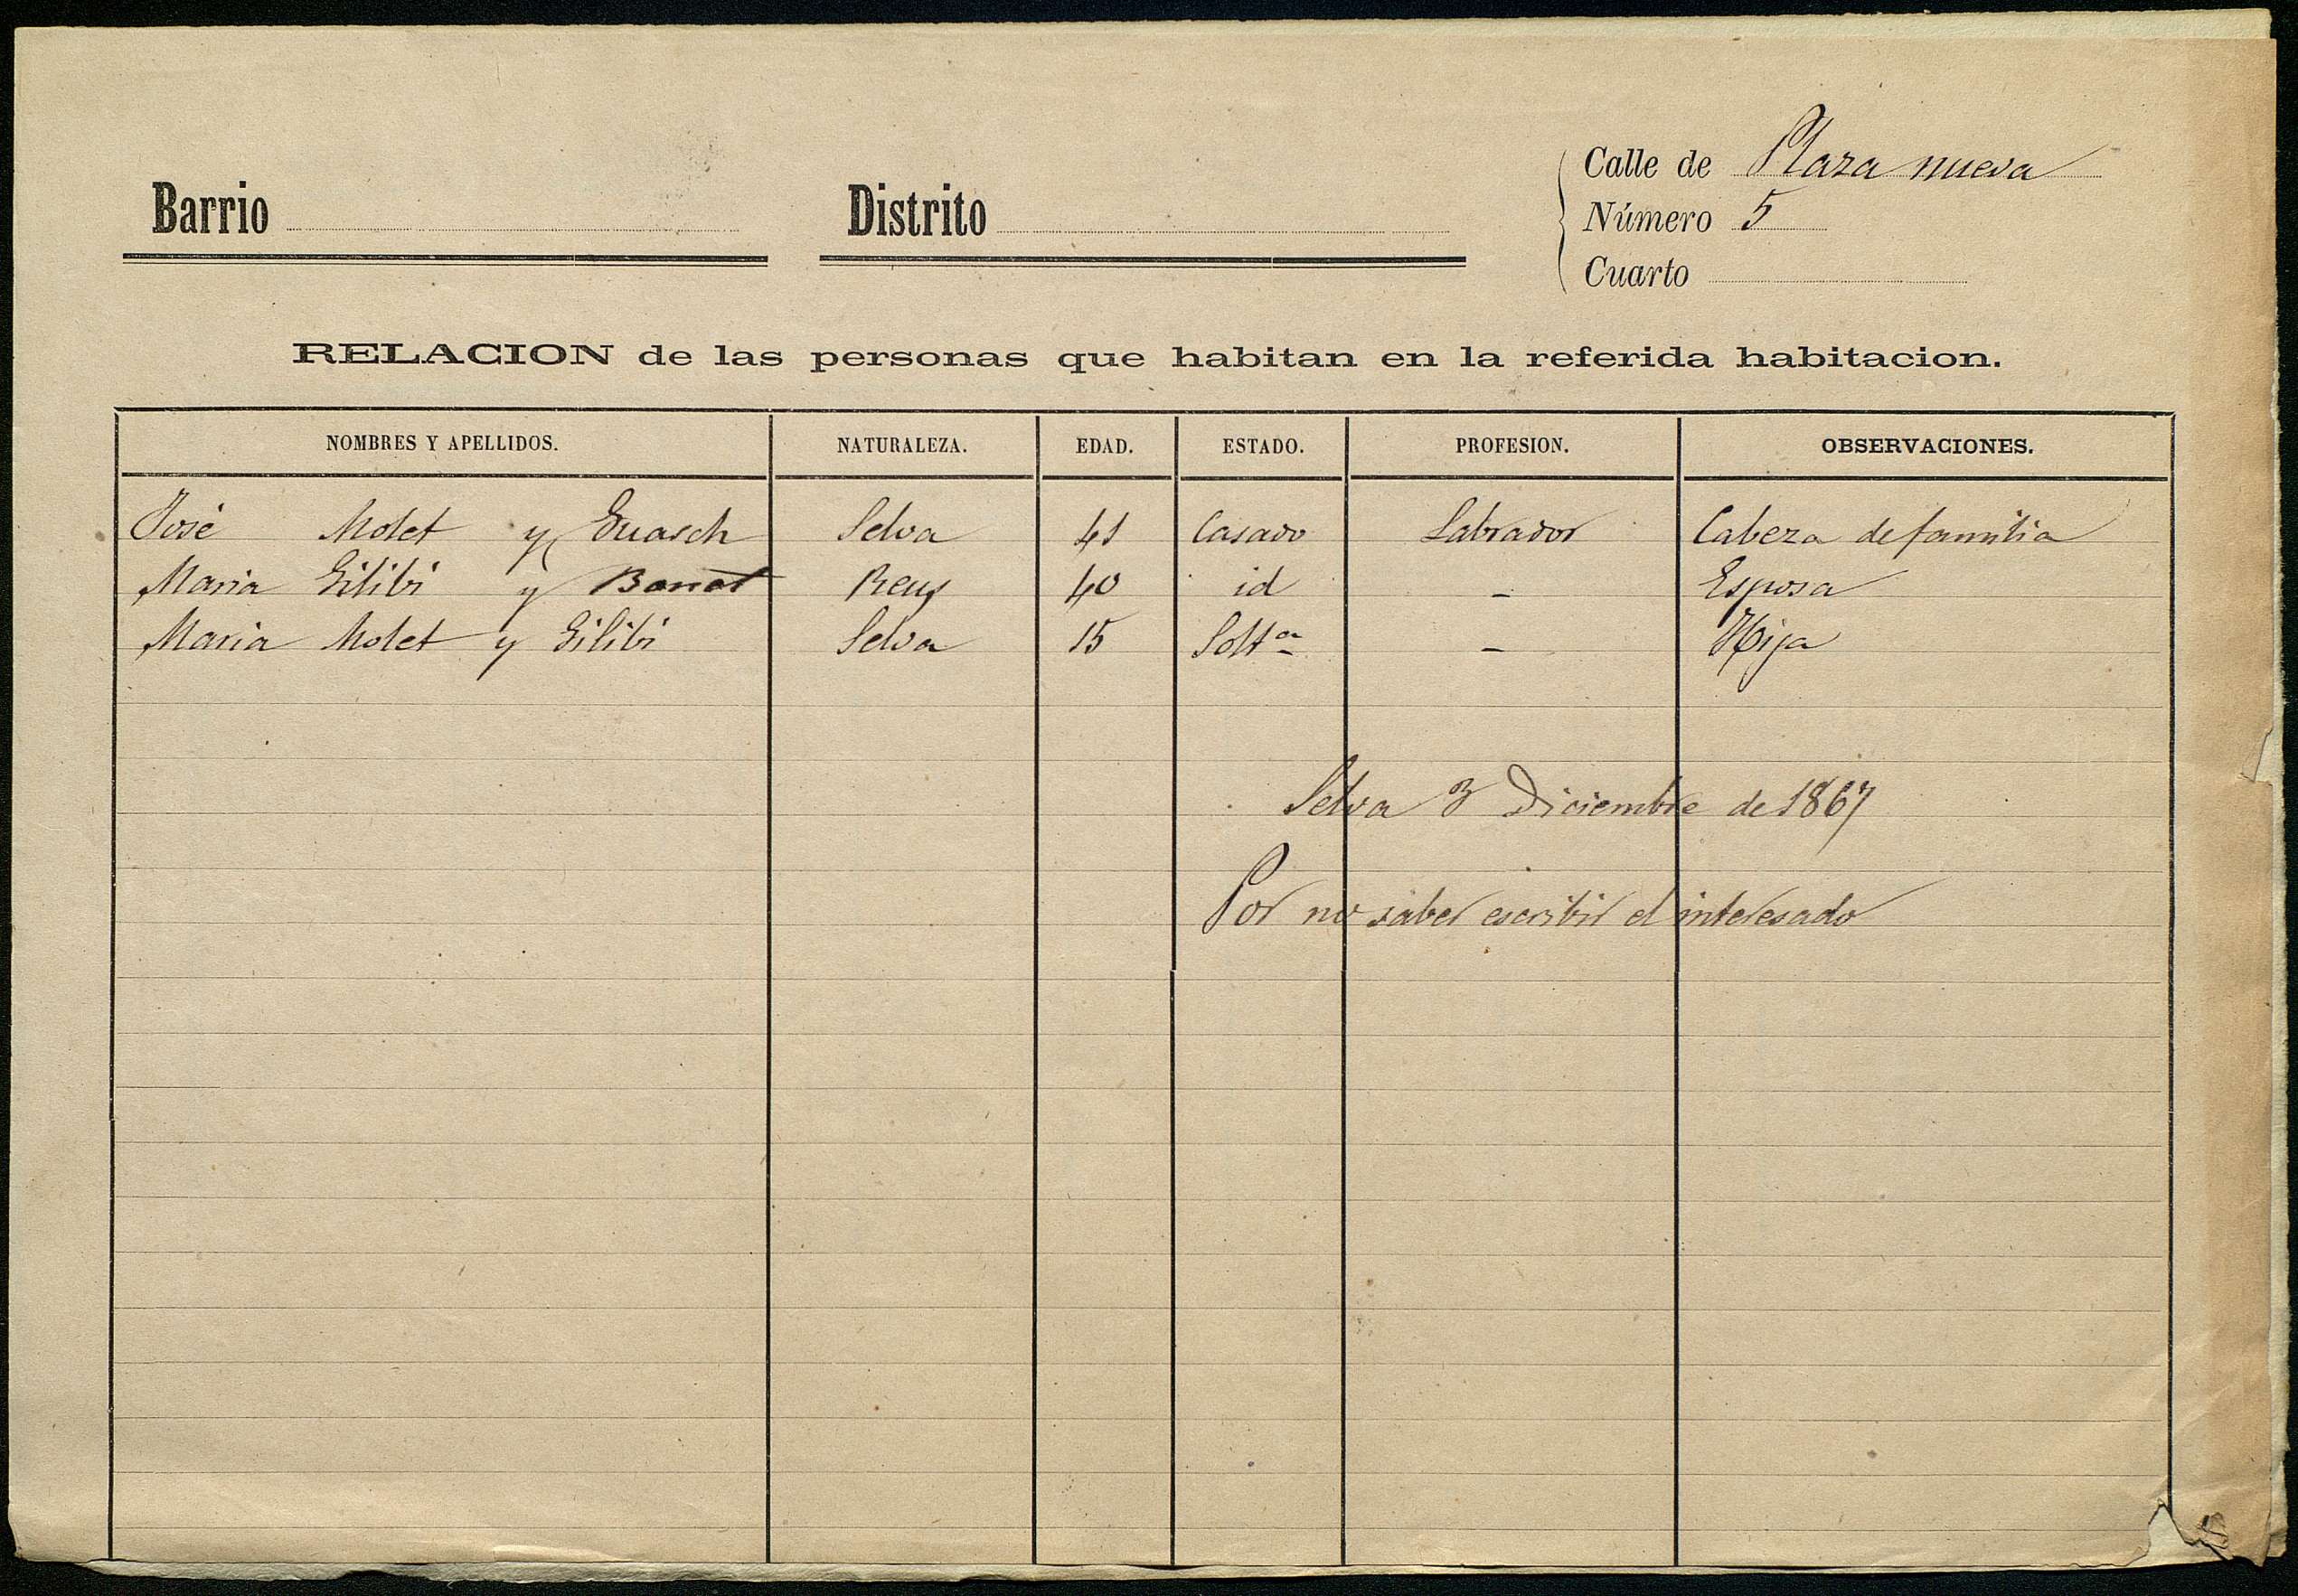 Barrio
Distrito
Calle de Plaza nueva
Número 5
Cuarto
RELACION de las personas que habitan en la referida habitacion.
NOMBRES Y APELLIDOS. NATURALEZA. EDAD. ESTADO. PROFESION. OBSERVACIONES.
José Molet y Guasch Selva 41 Casado Labrador Cabeza de familia
Maria Gilibi y Bonet Reus 40 id - Esposa
Maria Molet y Gilibi Selva 15 Solt.ª - Hija
Selva 3 Diciembre de 1867
Por no saber escribir el interesado